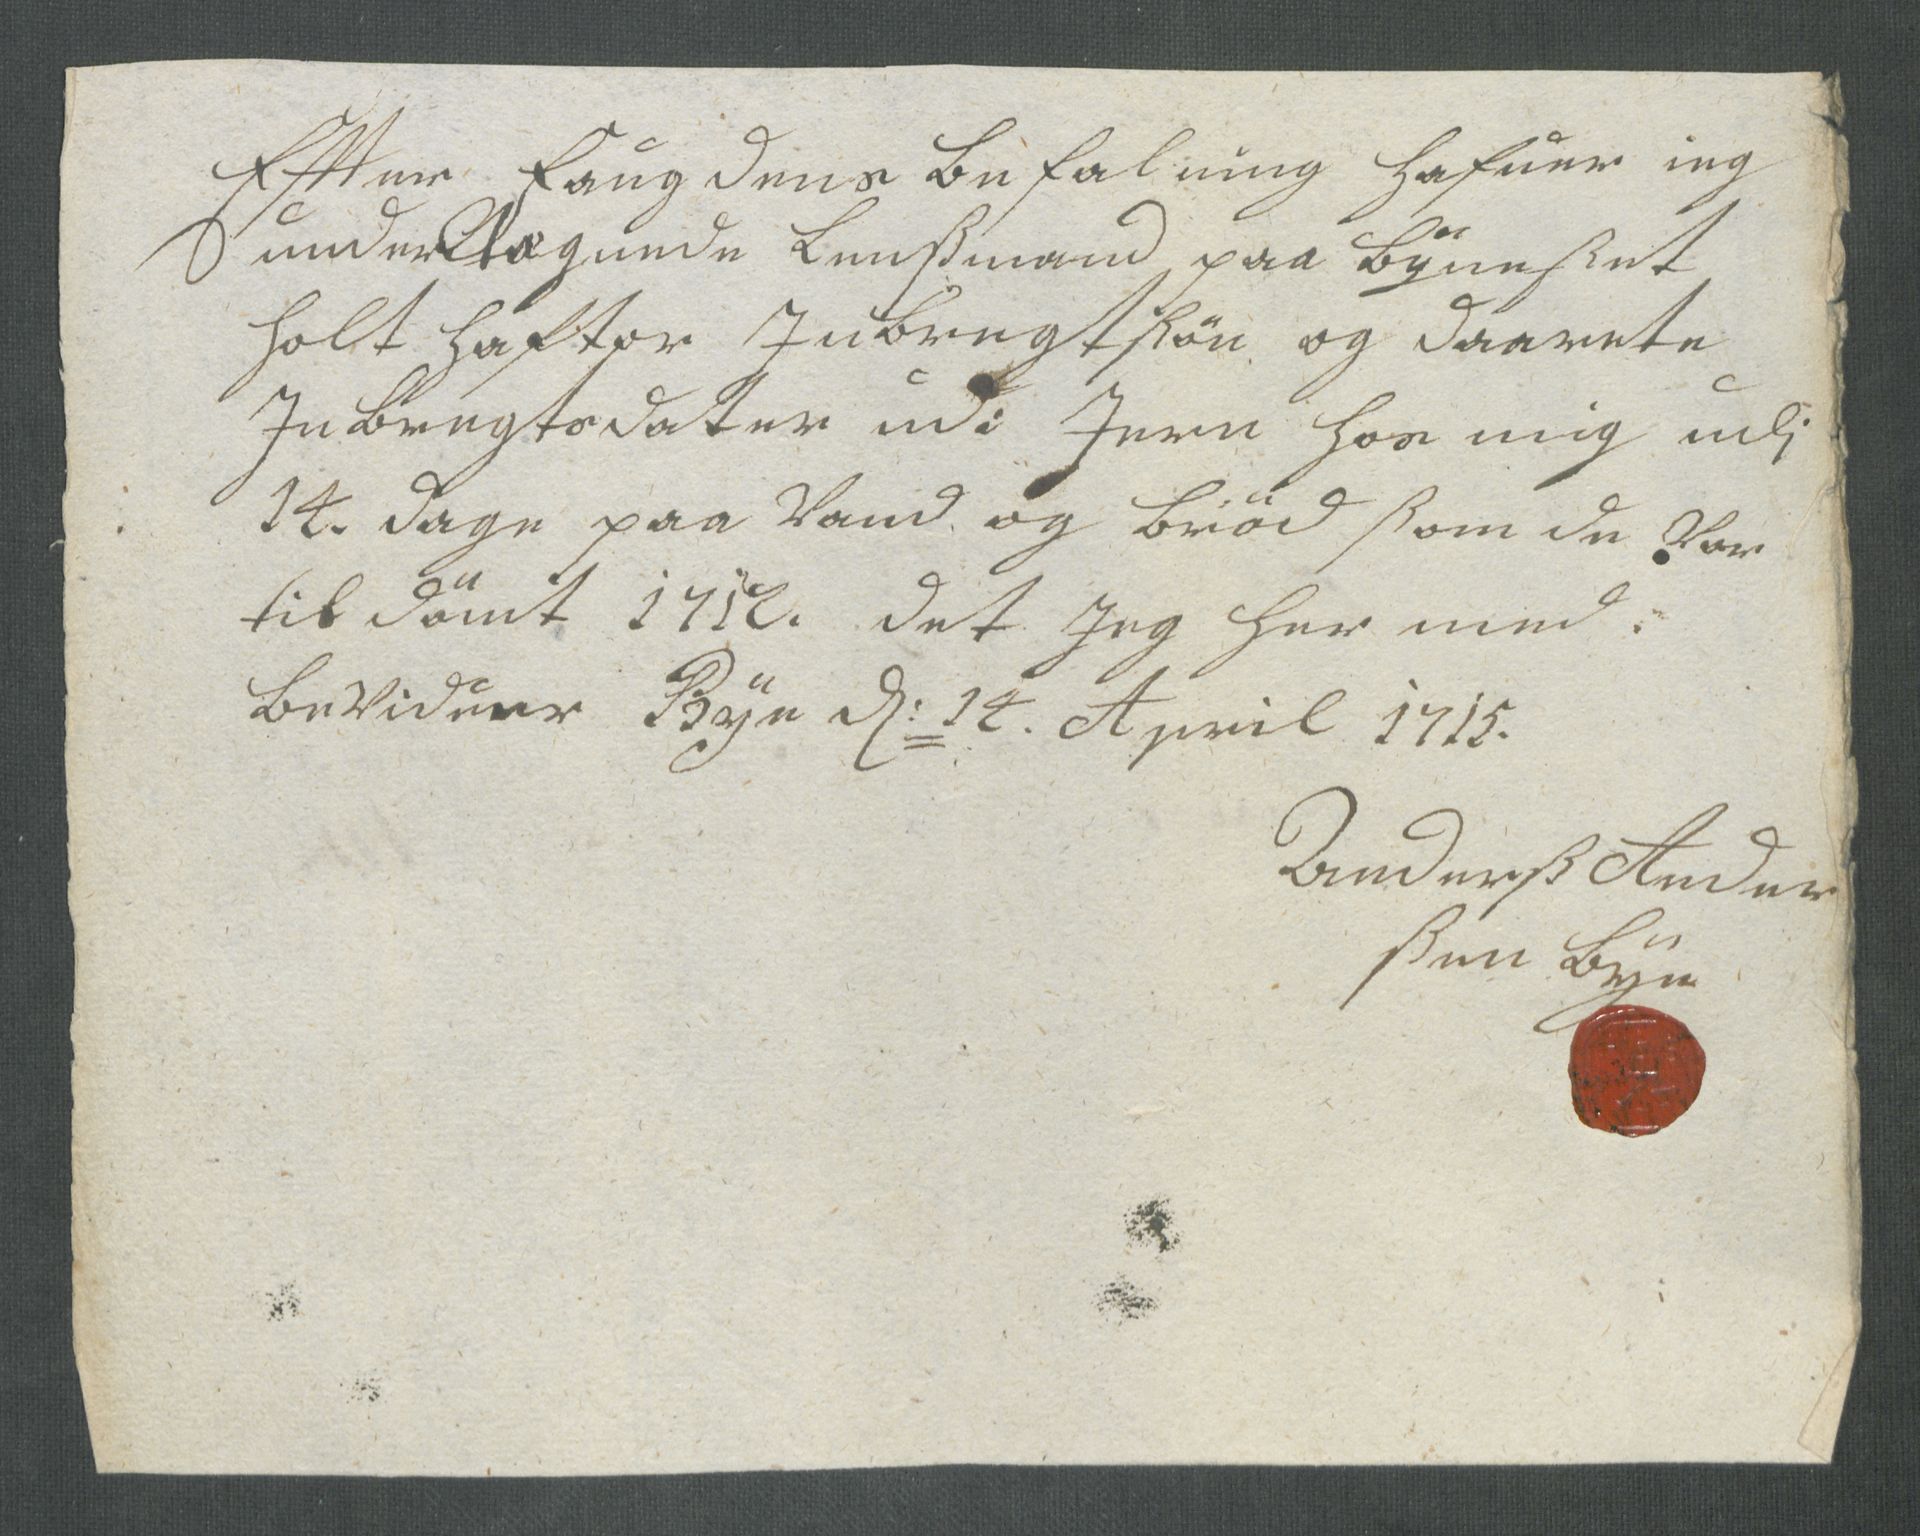 Effter Faugdens Befalning hafuer ieg
underskrefne Lensmand paa Byneßet
holt Haftor Inbregtsøn og Daarete
Inbregtsdater udi Jern hos mig udi
14. dage paa Vand og Brød som de Var
til dömt 1712. det Jeg her med
beVidner Bÿe d: 14. April 1715.
Anderß Ander
ßen Bÿe